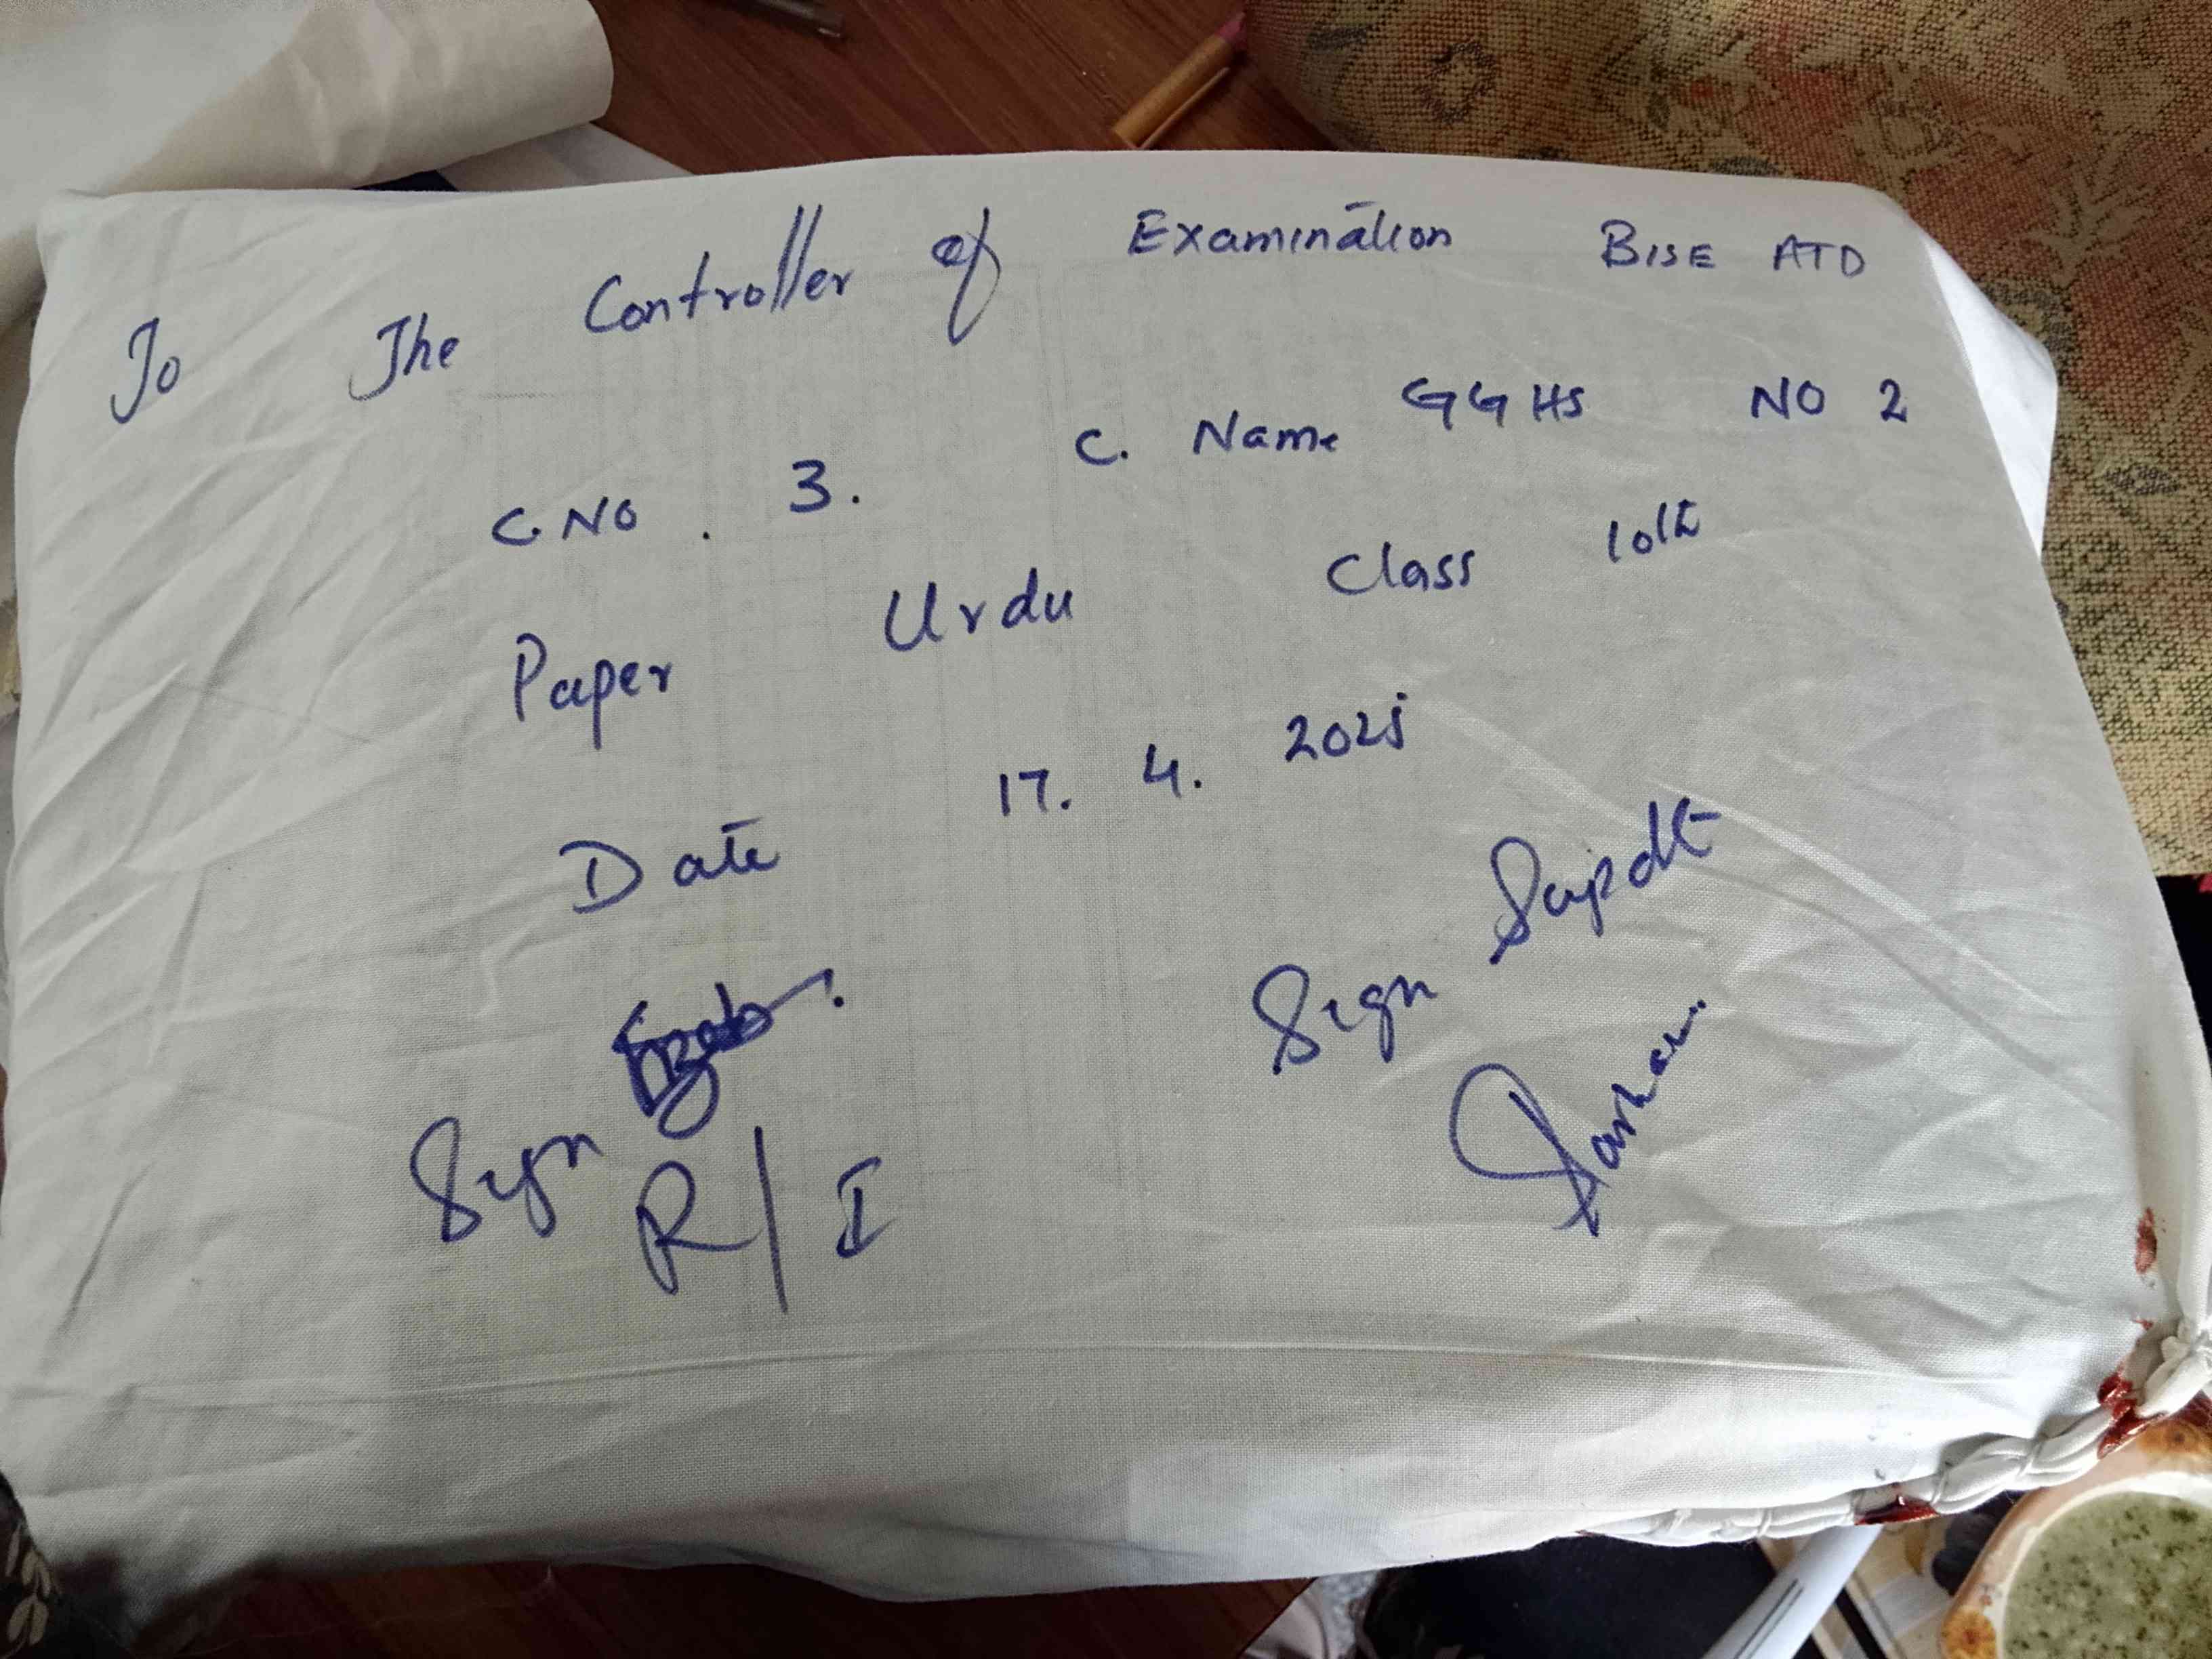 To The Controller of Examination BISE ATD
C.NO. 3. C. Name GGHS NO 2
Paper Urdu Class 10th
Date 17. 4. 2025
Sign Sign Supdt
R/I